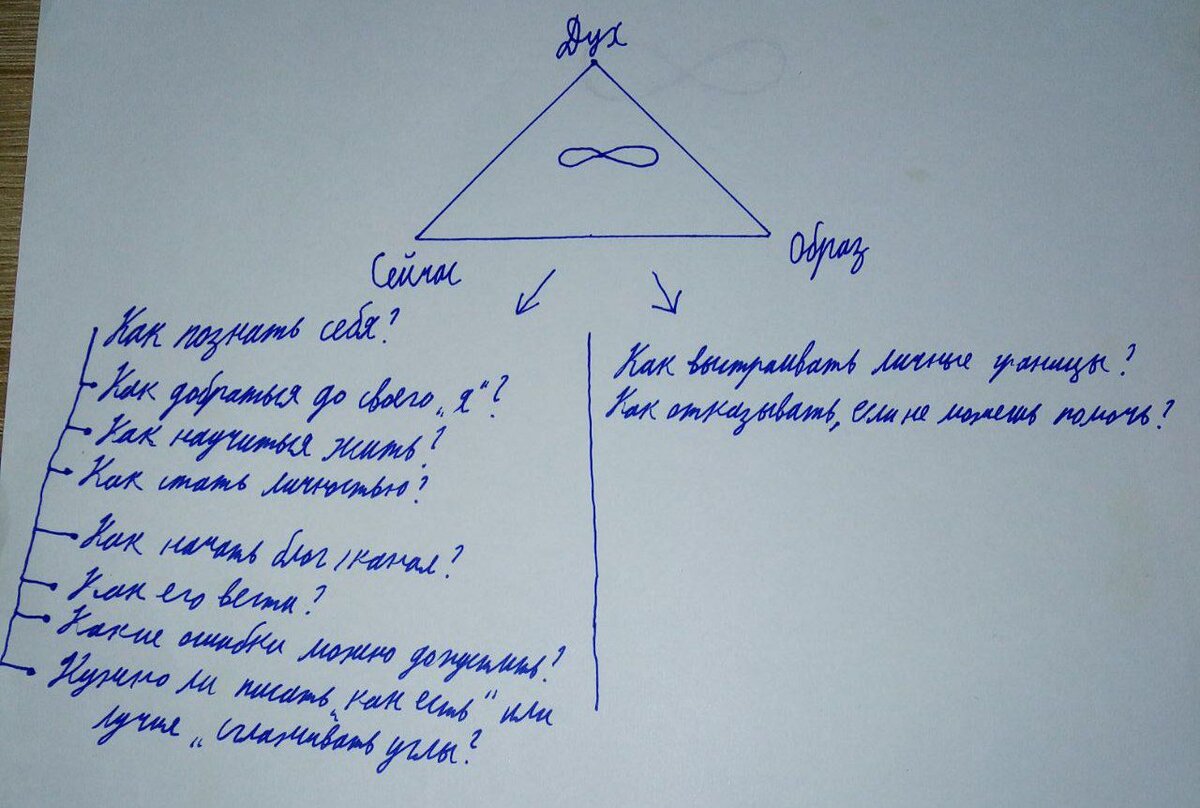 Дух
Сейчас
Образ
Как познать себя?
Как добраться до своего „я"?
Как научиться жить?
Как стать личностью?
Как начать блог/канал?
Как его вести?
Какие ошибки можно допустить?
Нужно ли писать „как есть" или
лучше „сглаживать углы?
Как выстраивать личные границы?
Как отказывать, если не можешь помочь?